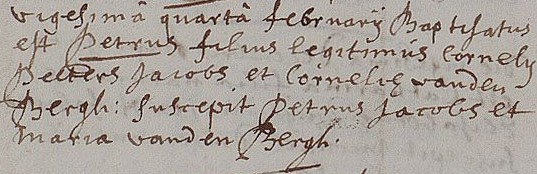 vigesimâ quartâ februarij Baptisatus
est Petrus filius legitimus Cornelij
Peeters Jacobs et Corneliæ vanden
Bergh: suscepit Petrus Jacobs et
Maria vanden Bergh.